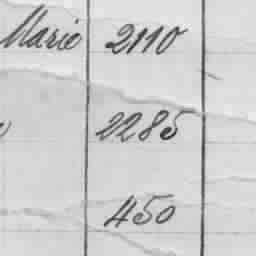 Marie 2110
2285
450